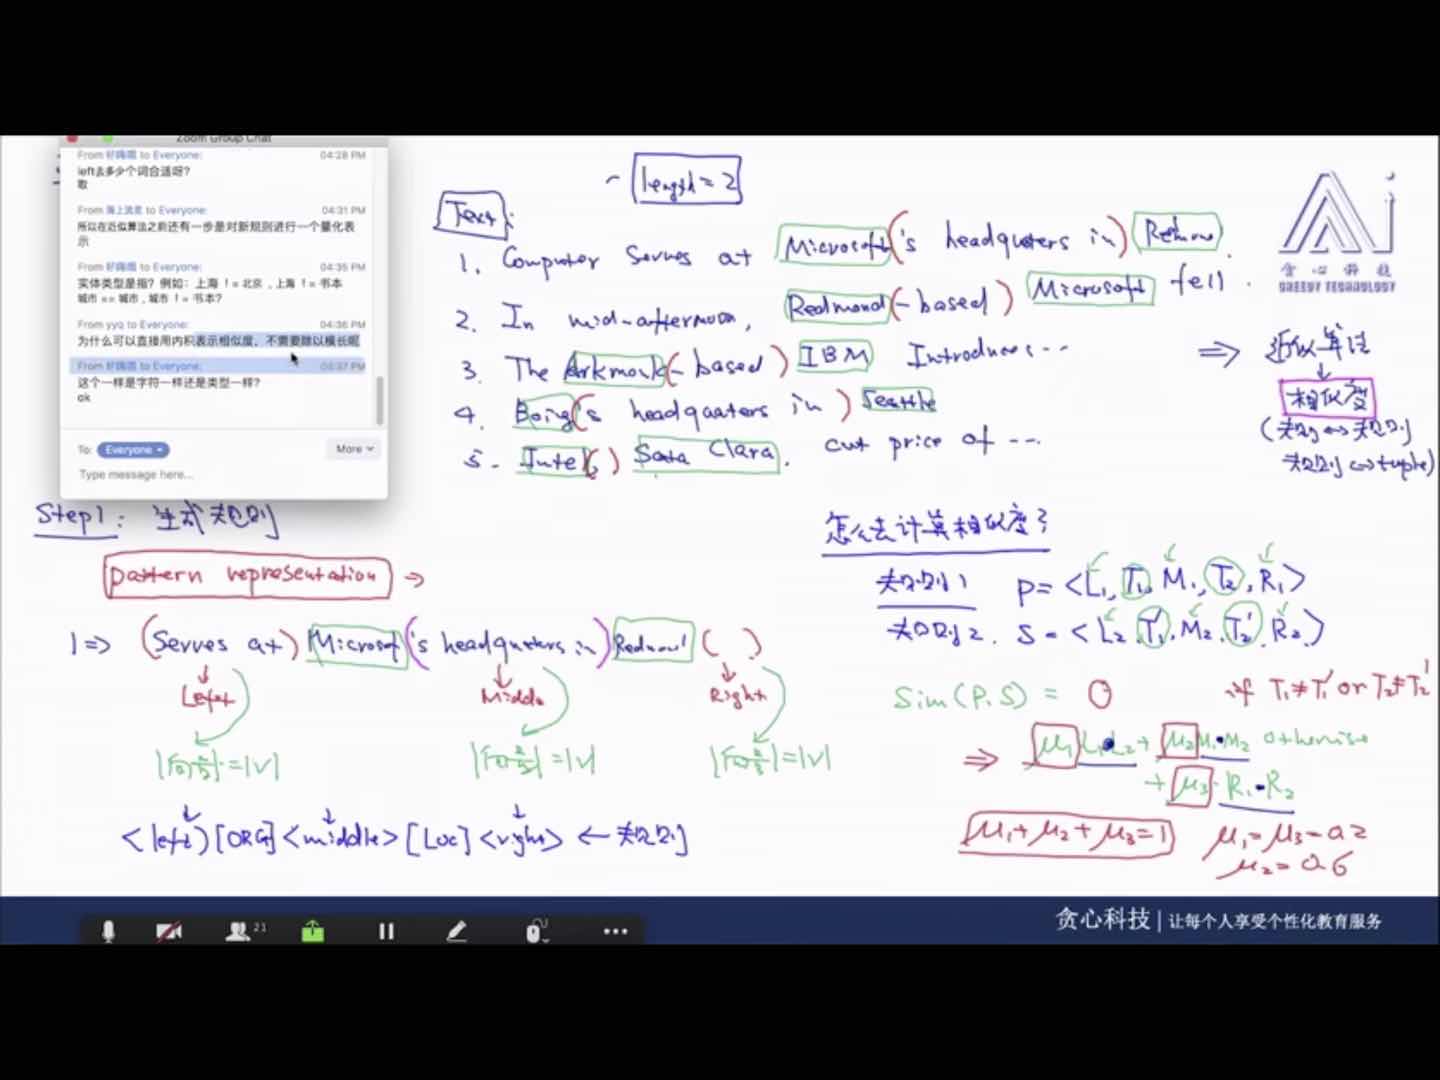 Zoom Group Chat
From 好嗨哦 to Everyone: 04:28 PM
left去多少个词合适呀?
取
From 海上流衷 to Everyone: 04:31 PM
所以在近似算法之前还有一步是对新规则进行一个量化表
示
From 好嗨哦 to Everyone: 04:35 PM
实体类型是指? 例如: 上海 != 北京 , 上海 != 书本
城市 == 城市 , 城市 != 书本?
From yyq to Everyone: 04:36 PM
为什么可以直接用内积表示相似度, 不需要除以模长呢
From 好嗨哦 to Everyone: 04:37 PM
这个一样是字符一样还是类型一样?
ok
To: Everyone More
Type message here...
length = 2
Text:
1. Computer Serves at Microsoft('s headquters in) Redmon.
2. In mid-afternoon, Redmond(-based) Microsoft fell.
3. The Arkmonk(-based) IBM Introduces...
4. Boing('s headquaters in) Seattle
5. Intel( ) Sata Clara. cut price of ...
⇒ 近似算法
↓
相似度
(规则↔规则
规则↔tuple)
贪心科技
GREEDY TECHNOLOGY
Step1: 生成规则
pattern representation →
1⇒ (Serves at) Microsof('s headquters in) Redmon( )
Left Middle Right
|向量|=|V| |向量|=|V| |向量|=|V|
<left>[ORG]<middle>[LOC]<right> ← 规则
怎么去计算相似度?
规则1 P=<L1, T1, M1, T2, R1>
规则2. S=<L2, T1', M2, T2', R2>
Sim(P.S) = 0 if T1≠T1' or T2≠T2'
⇒ μ1 L1•L2 + μ2 M1•M2 otherwise
+ μ3·R1•R2
μ1+μ2+μ3=1 μ1=μ3=0.2
μ2=0.6
21
贪心科技 | 让每个人享受个性化教育服务